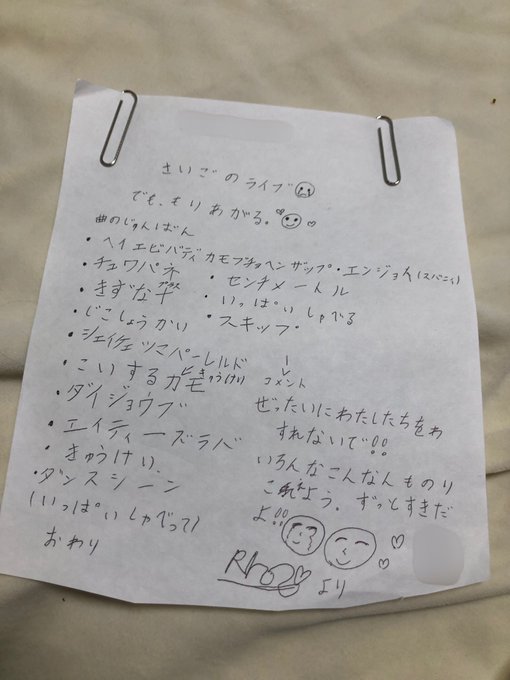 さいごのライブ
でも、もりあがる。
曲のじゅんばん
・ヘイエビバディカモプチョヘンザップ・エンジョイ(スパニィ)
・チュワパネ
・きずなプラス
・じこしょうかい
・センチメートル
・いっぱいしゃべる
・スキップ
・シェイケェツマパーレルド
・こいするカモ
きゅうけい
・ダイジョウブ
・エイティーズラバ
・きゅうけい
・ダンスシーン
(いっぱいしゃべって)
おわり
コメント
ぜったいにわたしたちをわ
すれないで!!
いろんなこんなんものり
こえよう。ずっとすきだ
よ!!
より